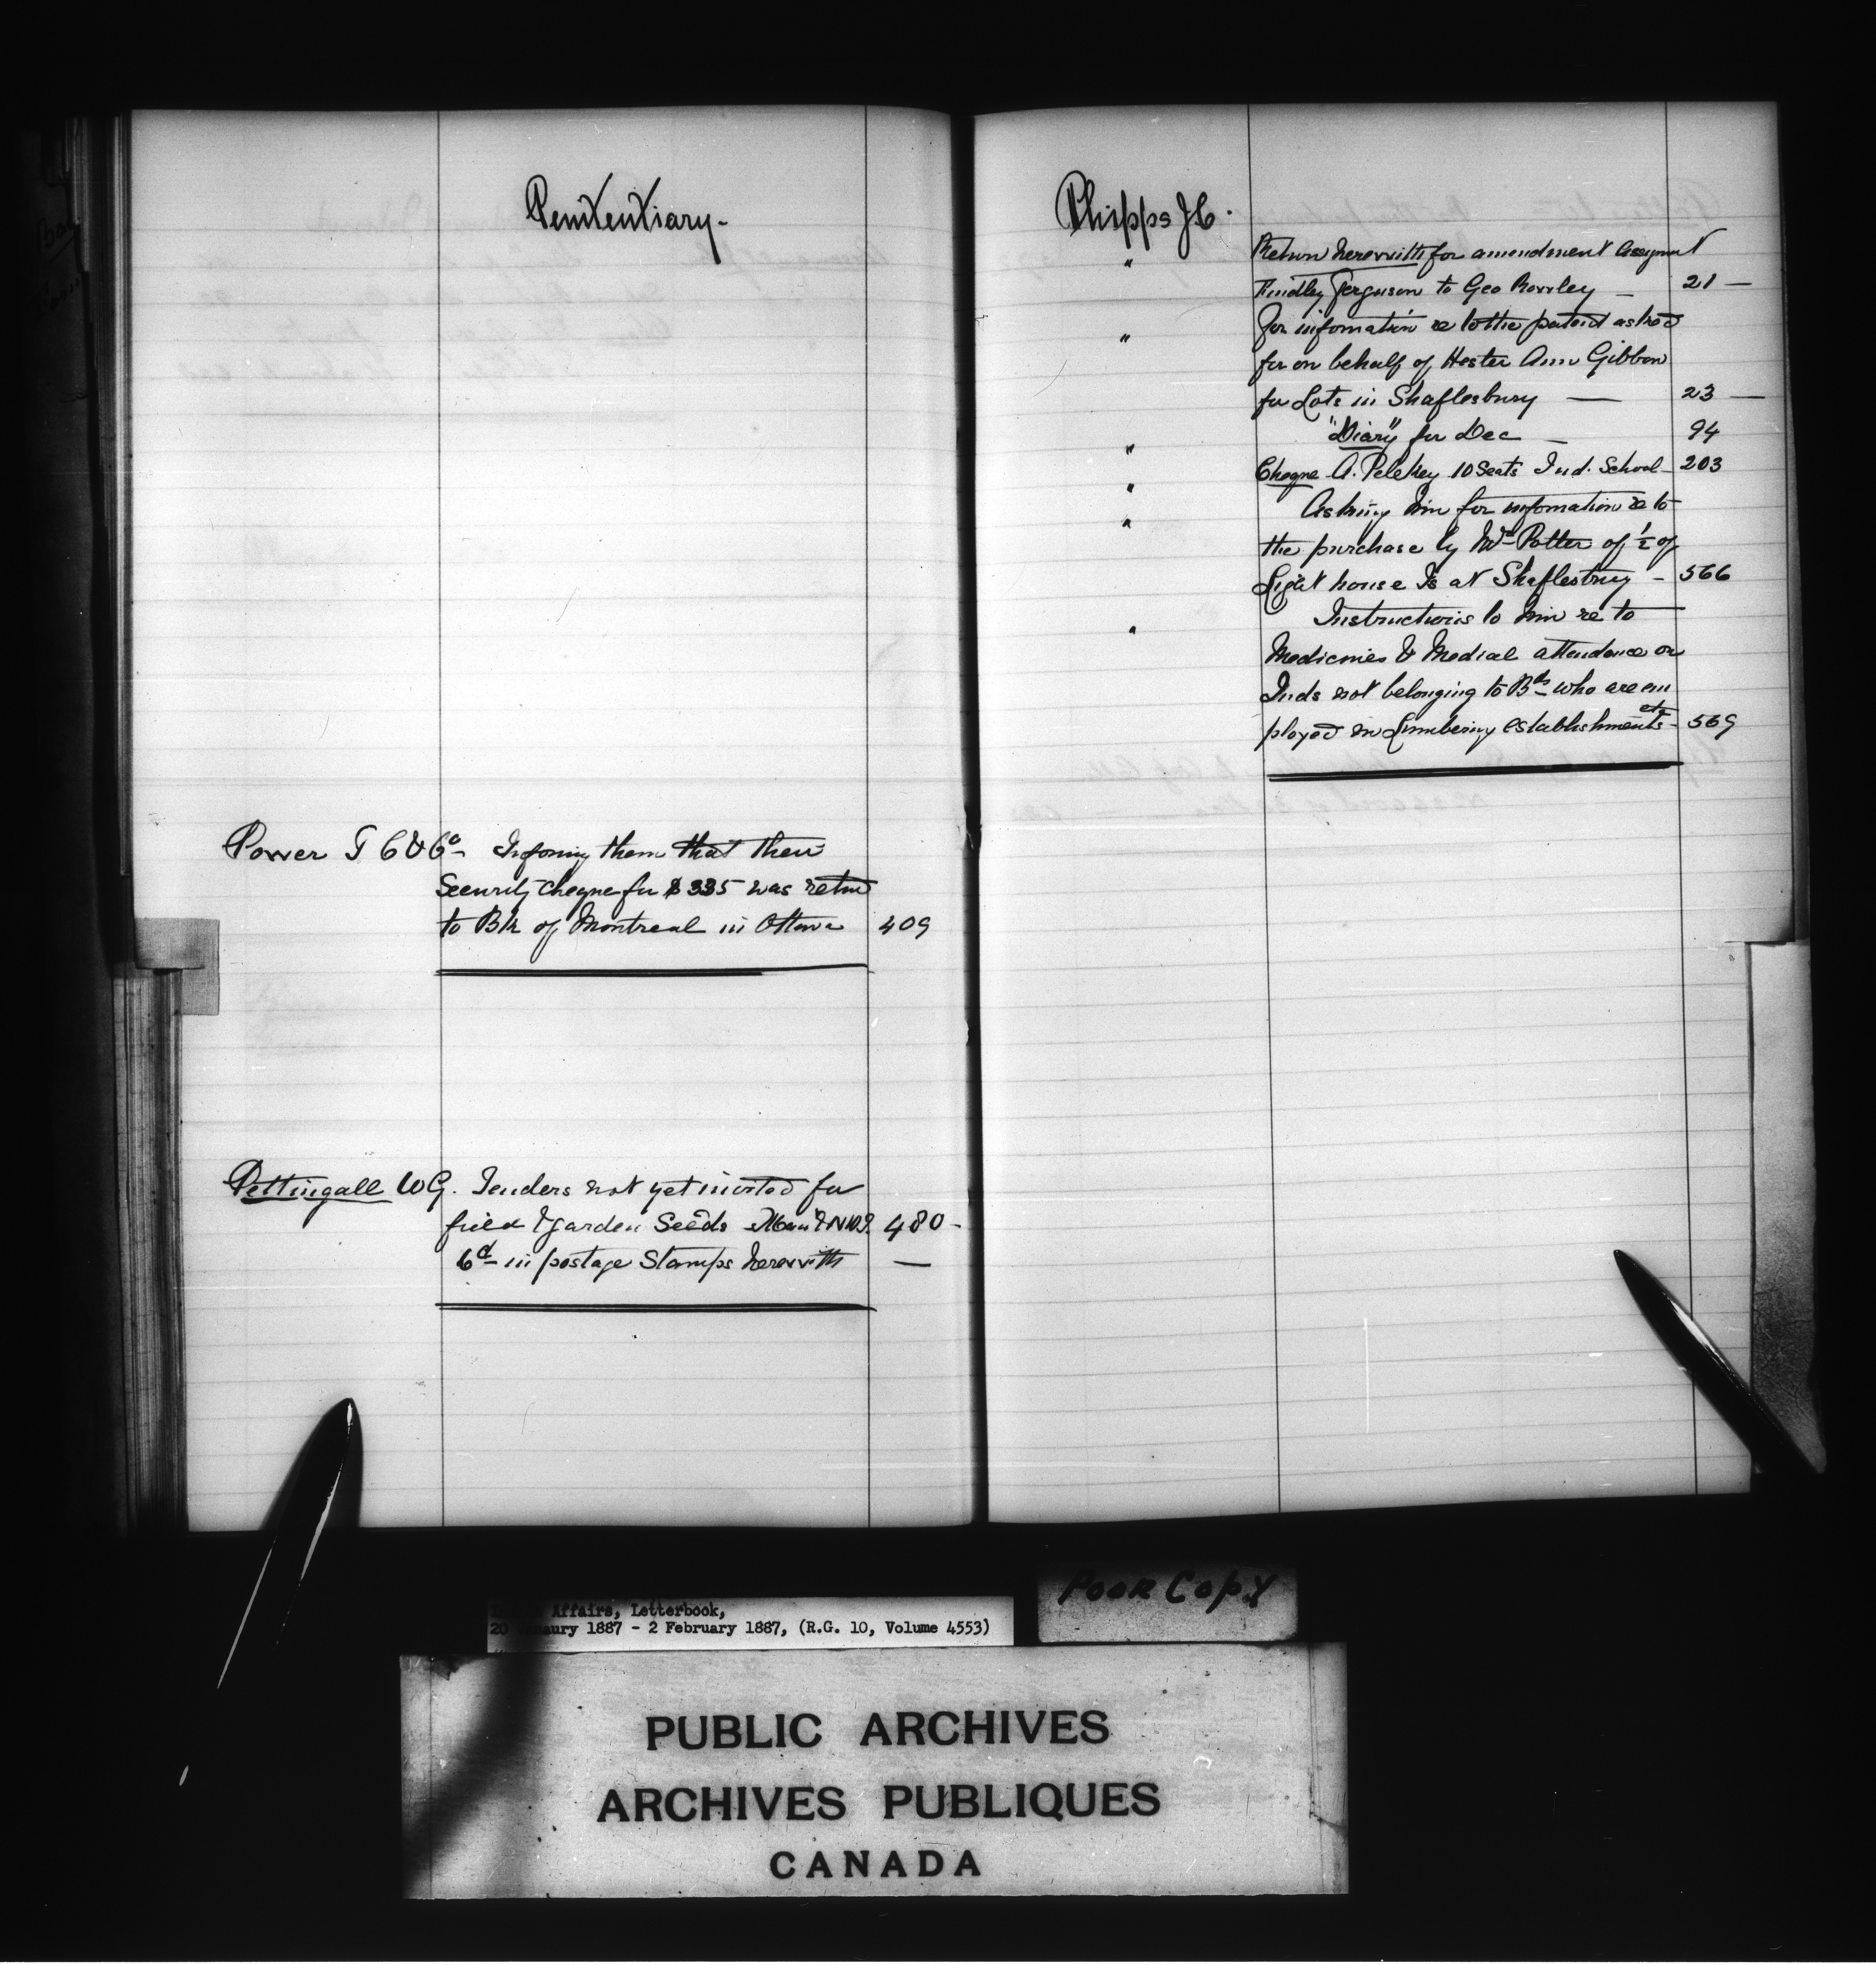 Penitentiary -
Power T C & Co - Informing them that their
Security cheque for $335 was retnd
to Bk of Montreal in Ottawa 409
Pettingall W G. Tenders not yet invited for
field & garden Seeds Man & NWT. 480 -
6d in postage Stamps herewith —
Phipps J C.
" Return herewith for amendment Assignmt
Findley Ferguson to Geo Rowley — 21 —
" For infomation re to the patent asked
for on behalf of Hester Ann Gibbon
for Lots in Shaftesbury — 23 —
" "Diary" for Dec — 94
" Cheque A. Peleltey 10 Seats Ind. School - 203
" Asking him for infomation re to
the purchase by Wm Potter of ½ of
Light house Is at Shaftesbury - 566
" Instructions to him re to
Medicines & Medial attendance on
Inds not belonging to Bds who are em
ployed in Lumbering establishments etc - 569
Affairs, Letterbook,
20 Janaury 1887 - 2 February 1887, (R.G. 10, Volume 4553)
POOR COPY
PUBLIC ARCHIVES
ARCHIVES PUBLIQUES
CANADA